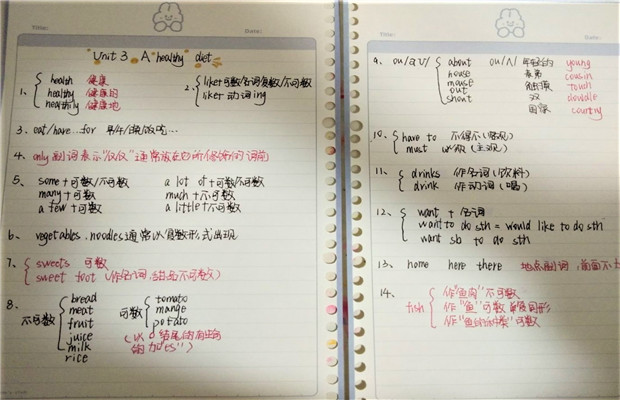 Title:
Date:
Unit 3 A healthy diet
1、 health 健康
healthy 健康的
healthily 健康地
2、 like+可数/名词复数/不可数
like+动词ing
3、eat/have...for 早/午/晚饭吃…
4、only副词表示"仅仅"通常放在它所修饰的词前
5、 some+可数/不可数
many+可数
a few+可数
a lot of+可数/不可数
much+不可数
a little+不可数
6、vegetables、noodles通常以复数形式出现
7、 sweets 可数
sweet foot (作名词,甜品不可数)
8、不可数
bread
meat
fruit
juice
milk
rice
可数
tomato
mango
potato
(以o结尾的
的加"es")
Title:
Date:
9、ou/aʊ/
about
house
mouse
out
shout
ou/ʌ/
年轻的 young
表弟 cousin
触摸 touch
双 double
国家 country
10、 have to 不得不(客观)
must 必须(主观)
11、 drinks 作名词(饮料)
drink 作动词(喝)
12、 want + 名词
want to do sth = would like to do sth
want sb to do sth
13、home here there 地点副词,前面不
14、fish
作"鱼肉"不可数
作"鱼"可数单复同形
作"鱼的种类"可数